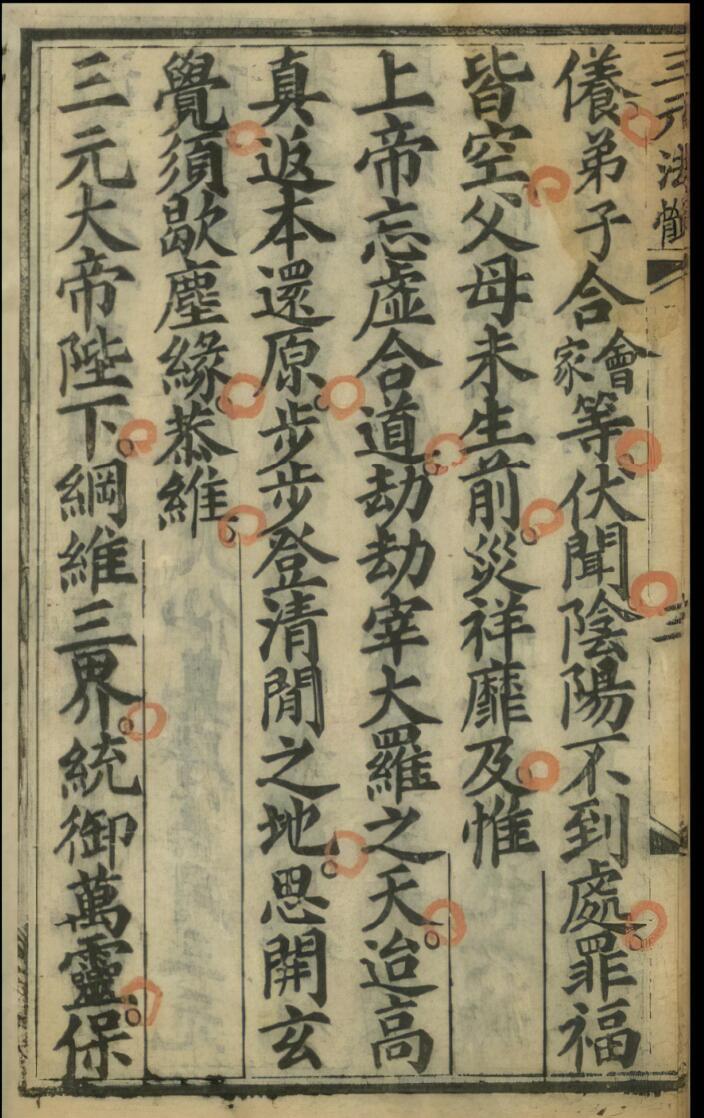 三元法
三
儀。弟子合會家等。伏聞。陰陽不到處。罪福
皆空。父母未生前。災祥靡及。惟
上帝忘虛合道。劫劫宰大羅之天。迨高
真返本還原。步步登清閒之地。思開玄
覺。須歇塵緣。恭維。
三元大帝陛下。綱維三界。統御萬靈。保